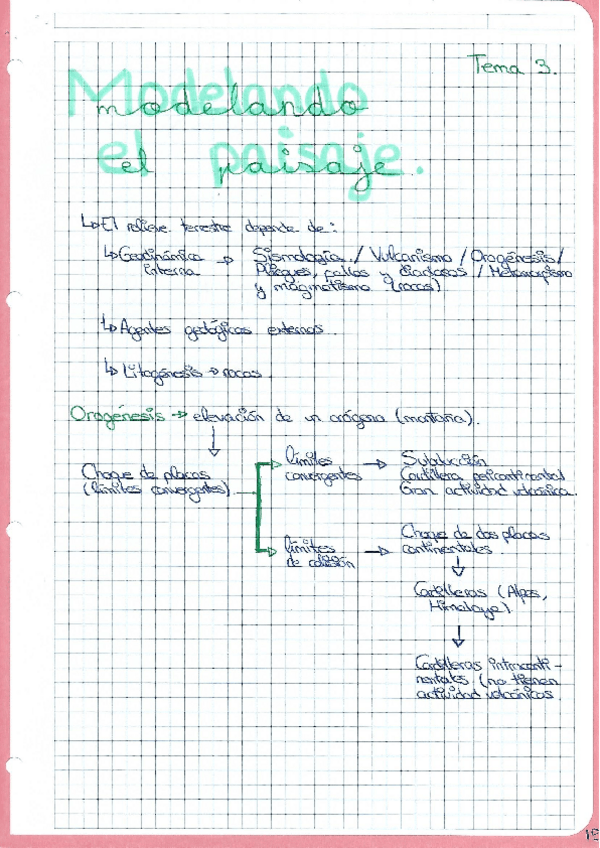 Tema 3.
Modelando
el paisaje.
↳ El relieve terrestre depende de:
↳ Geodinámica interna → Sismología / Vulcanismo / Orogénesis /
Pliegues, fallas y diaclasas / Metamorfismo
y magmatismo (rocas)
↳ Agentes geológicos externos.
↳ Litogénesis → rocas
Orogénesis → elevación de un orógeno (montaña).
Choque de placas
(límites convergentes)
límites
convergentes → Subducción
Cordillera pericontinental
Gran actividad volcánica.
límites
de colisión → Choque de dos placas
continentales
Cordilleras (Alpes,
Himalaya)
Cordilleras intraconti-
nentales (no tienen
actividad volcánica.
19